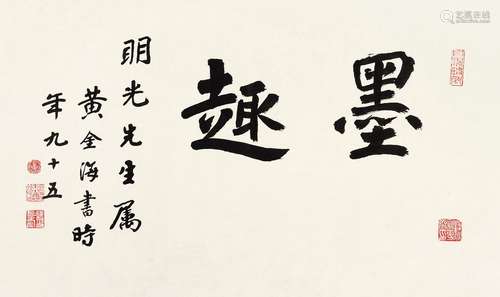 墨趣
明光先生属
黄金海書時
年九十五